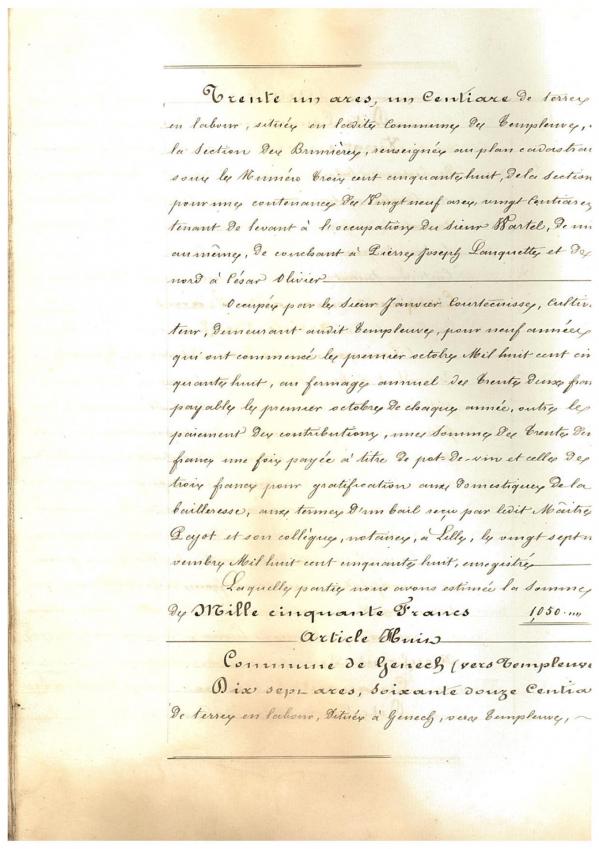 Trente un ares, un Centiare de terre
en labour, située en ladite Commune de Templeuve,
la Section des Bruuières, renseignée au plan cadastra
sous le Numéro Trois cent cinquante huit, de la section
pour une contenance de Vingt neuf ares, vingt Centiares
tenant de levant à l'occupation du sieur Wartel, de mi
au même, de couchant à Pierre Joseph Lauquette et de
nord à César Olivier
Occupée par le Sieur Janvier Courtecuisse, Cultiv
teur, demeurant audit Templeuve, pour neuf années
qui ont commencé le premier octobre Mil huit cent cin
quante huit, au fermage annuel de Trente deux fran
payable le premier octobre de chaque année, outre le
paiement des contributions, une somme de Trente de
francs une fois payée à titre de pot-de-vin et celle de
trois francs pour gratification aux domestiques de la
bailleresse, aux termes d'un bail reçu par ledit Maître
Pajot et son collègue, notaires, à Lille, le vingt sept n
vembre Mil huit cent cinquante huit, enregistré
Laquelle partie nous avons estimée la somme
de Mille cinquante Francs 1,050 "
Article Huit
Commune de Genech (vers Templeuve
Dix sept ares, Soixante douze Centia
de terre en labour, située à Genech, vers Templeuve,